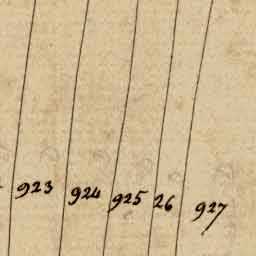 923 924 925 26 927